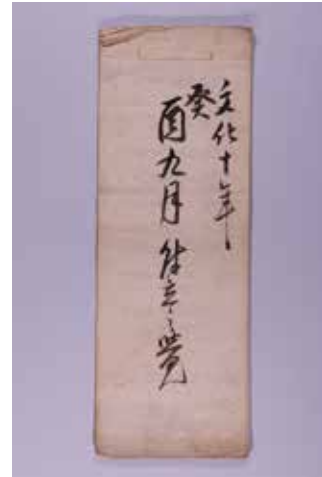 文化十年
癸
酉九月 覚